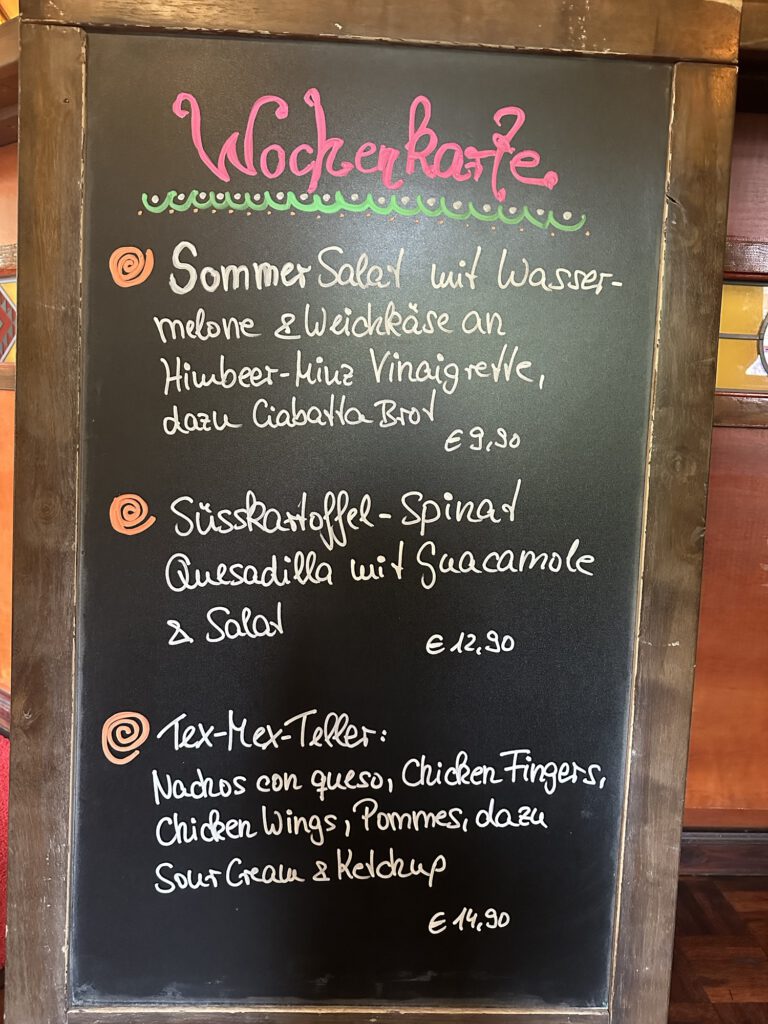 Wochenkarte
SommerSalat mit Wasser-
melone & Weichkäse an
Himbeer-Minz Vinaigrette,
dazu Ciabatta Brot
€ 9,90
Süsskartoffel-Spinat
Quesadilla mit Guacamole
& Salat
€ 12,90
Tex-Mex-Teller:
Nachos con queso, Chicken Fingers,
Chicken Wings, Pommes, dazu
Sour Cream & Ketchup
€ 14,90